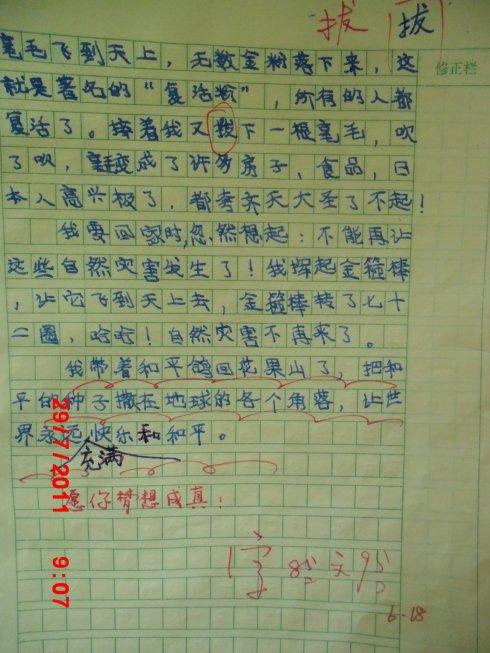 拔 拔
修正栏
毫毛飞到天上,无数金粉落下来,这
就是著名的“复活粉”,所有的人都
复活了。接着我又拨下一根毫毛,吹
了吹,毫毛变成了许多房子,食品,日
本人高兴极了,都夸齐天大圣了不起!
我要回家时,忽然想起:不能再让
这些自然灾害发生了!我挥起金箍棒
,让它飞到天上去,金箍棒转了七十
二圈,哈哈!自然灾害不再来了。
我带着和平鸽回花果山了,把和
平的种子撒在地球的各个角落,让世
界永远快乐和和平。
充满
愿你梦想成真!
字 85 文 95
6.18
29/7/2011 9:07